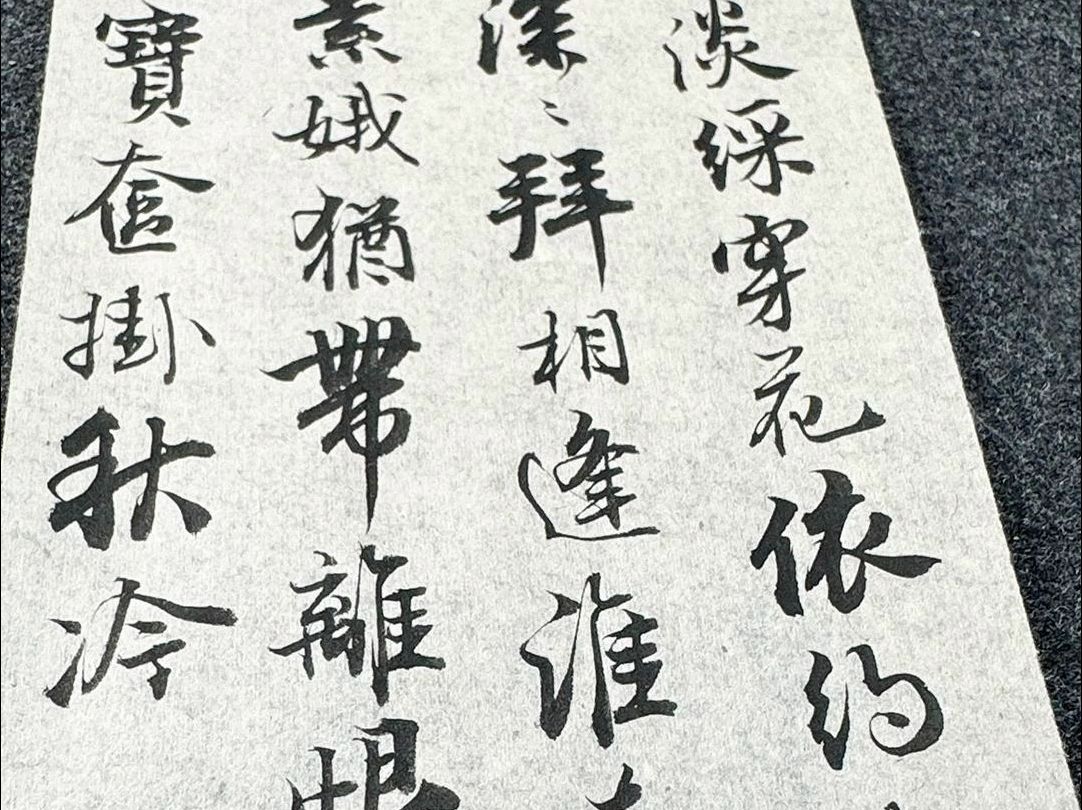 淡綵穿花依約
深〻拜相逢誰
素娥猶帶離恨
寶奩掛秋冷